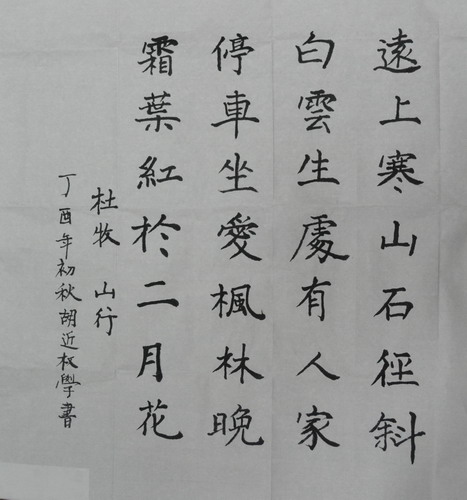 遠上寒山石徑斜
白雲生處有人家
停車坐愛楓林晚
霜葉紅於二月花
杜牧 山行
丁酉年初秋胡近枚學書